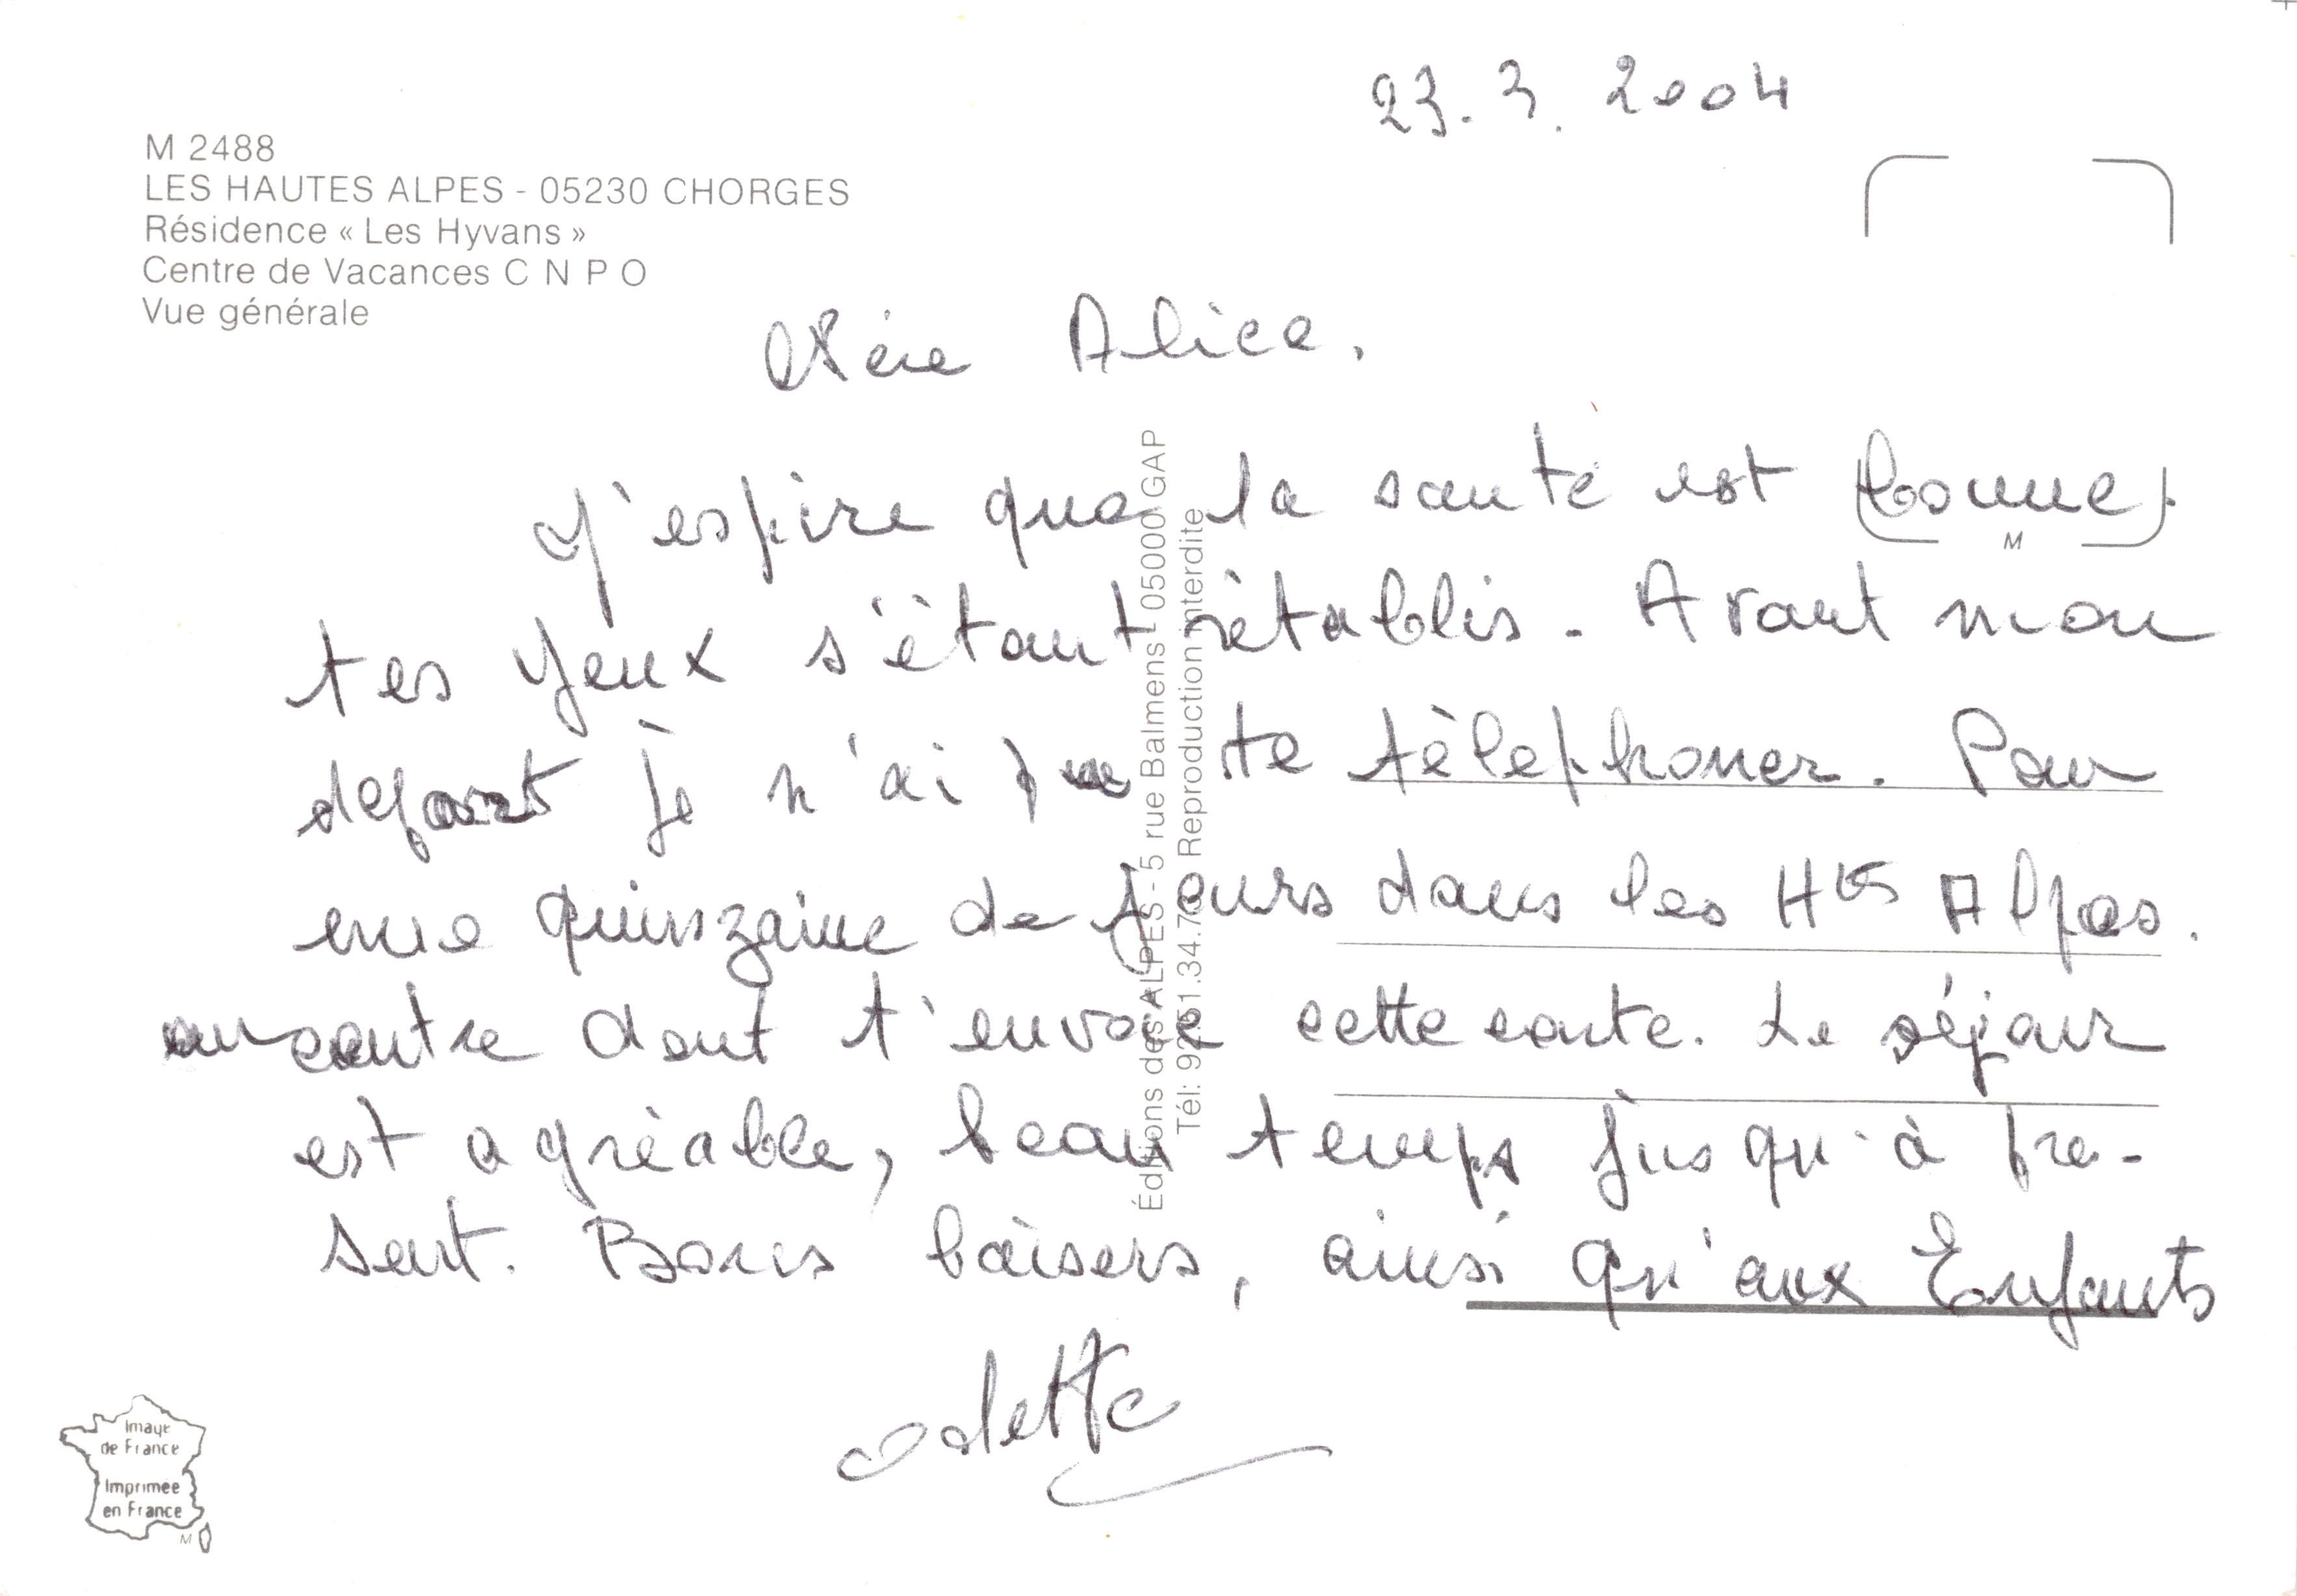 23.3.2004
M 2488
LES HAUTES ALPES - 05230 CHORGES
Résidence « Les Hyvans »
Centre de Vacances C N P O
Vue générale
Chère Alice,
J'espère que la santé est bonne.
tes yeux s'étant rétablis. Avant mon
départ je n'ai pu te télephoner. Pour
une quinszaine de jours dans les Htes Alpes.
au centre dont t'envoie cette carte. Le séjour
est agréable, beau temps jusqu'à pre-
sent. Bons baisers, ainsi qu'aux Enfants
Odette
Éditions des ALPES - 5 rue Balmens - 05000 GAP
Reproduction interdite
M
Image
de France
Imprimée
en France
M